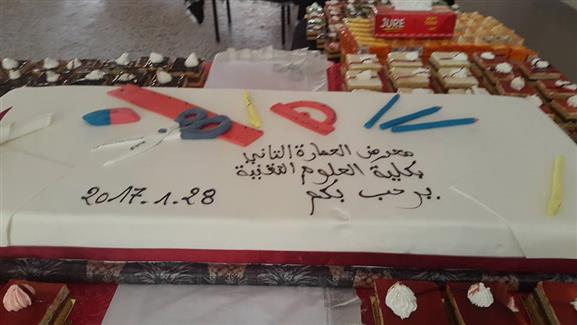 JURE
معرض العمارة الثاني
بكلية العلوم التقنية
يرحب بكم
2017.1.28